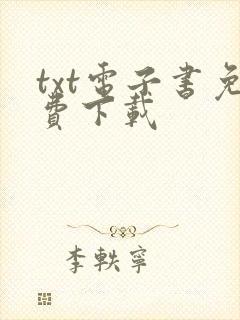 txt電子書免
費下載
李軼寧